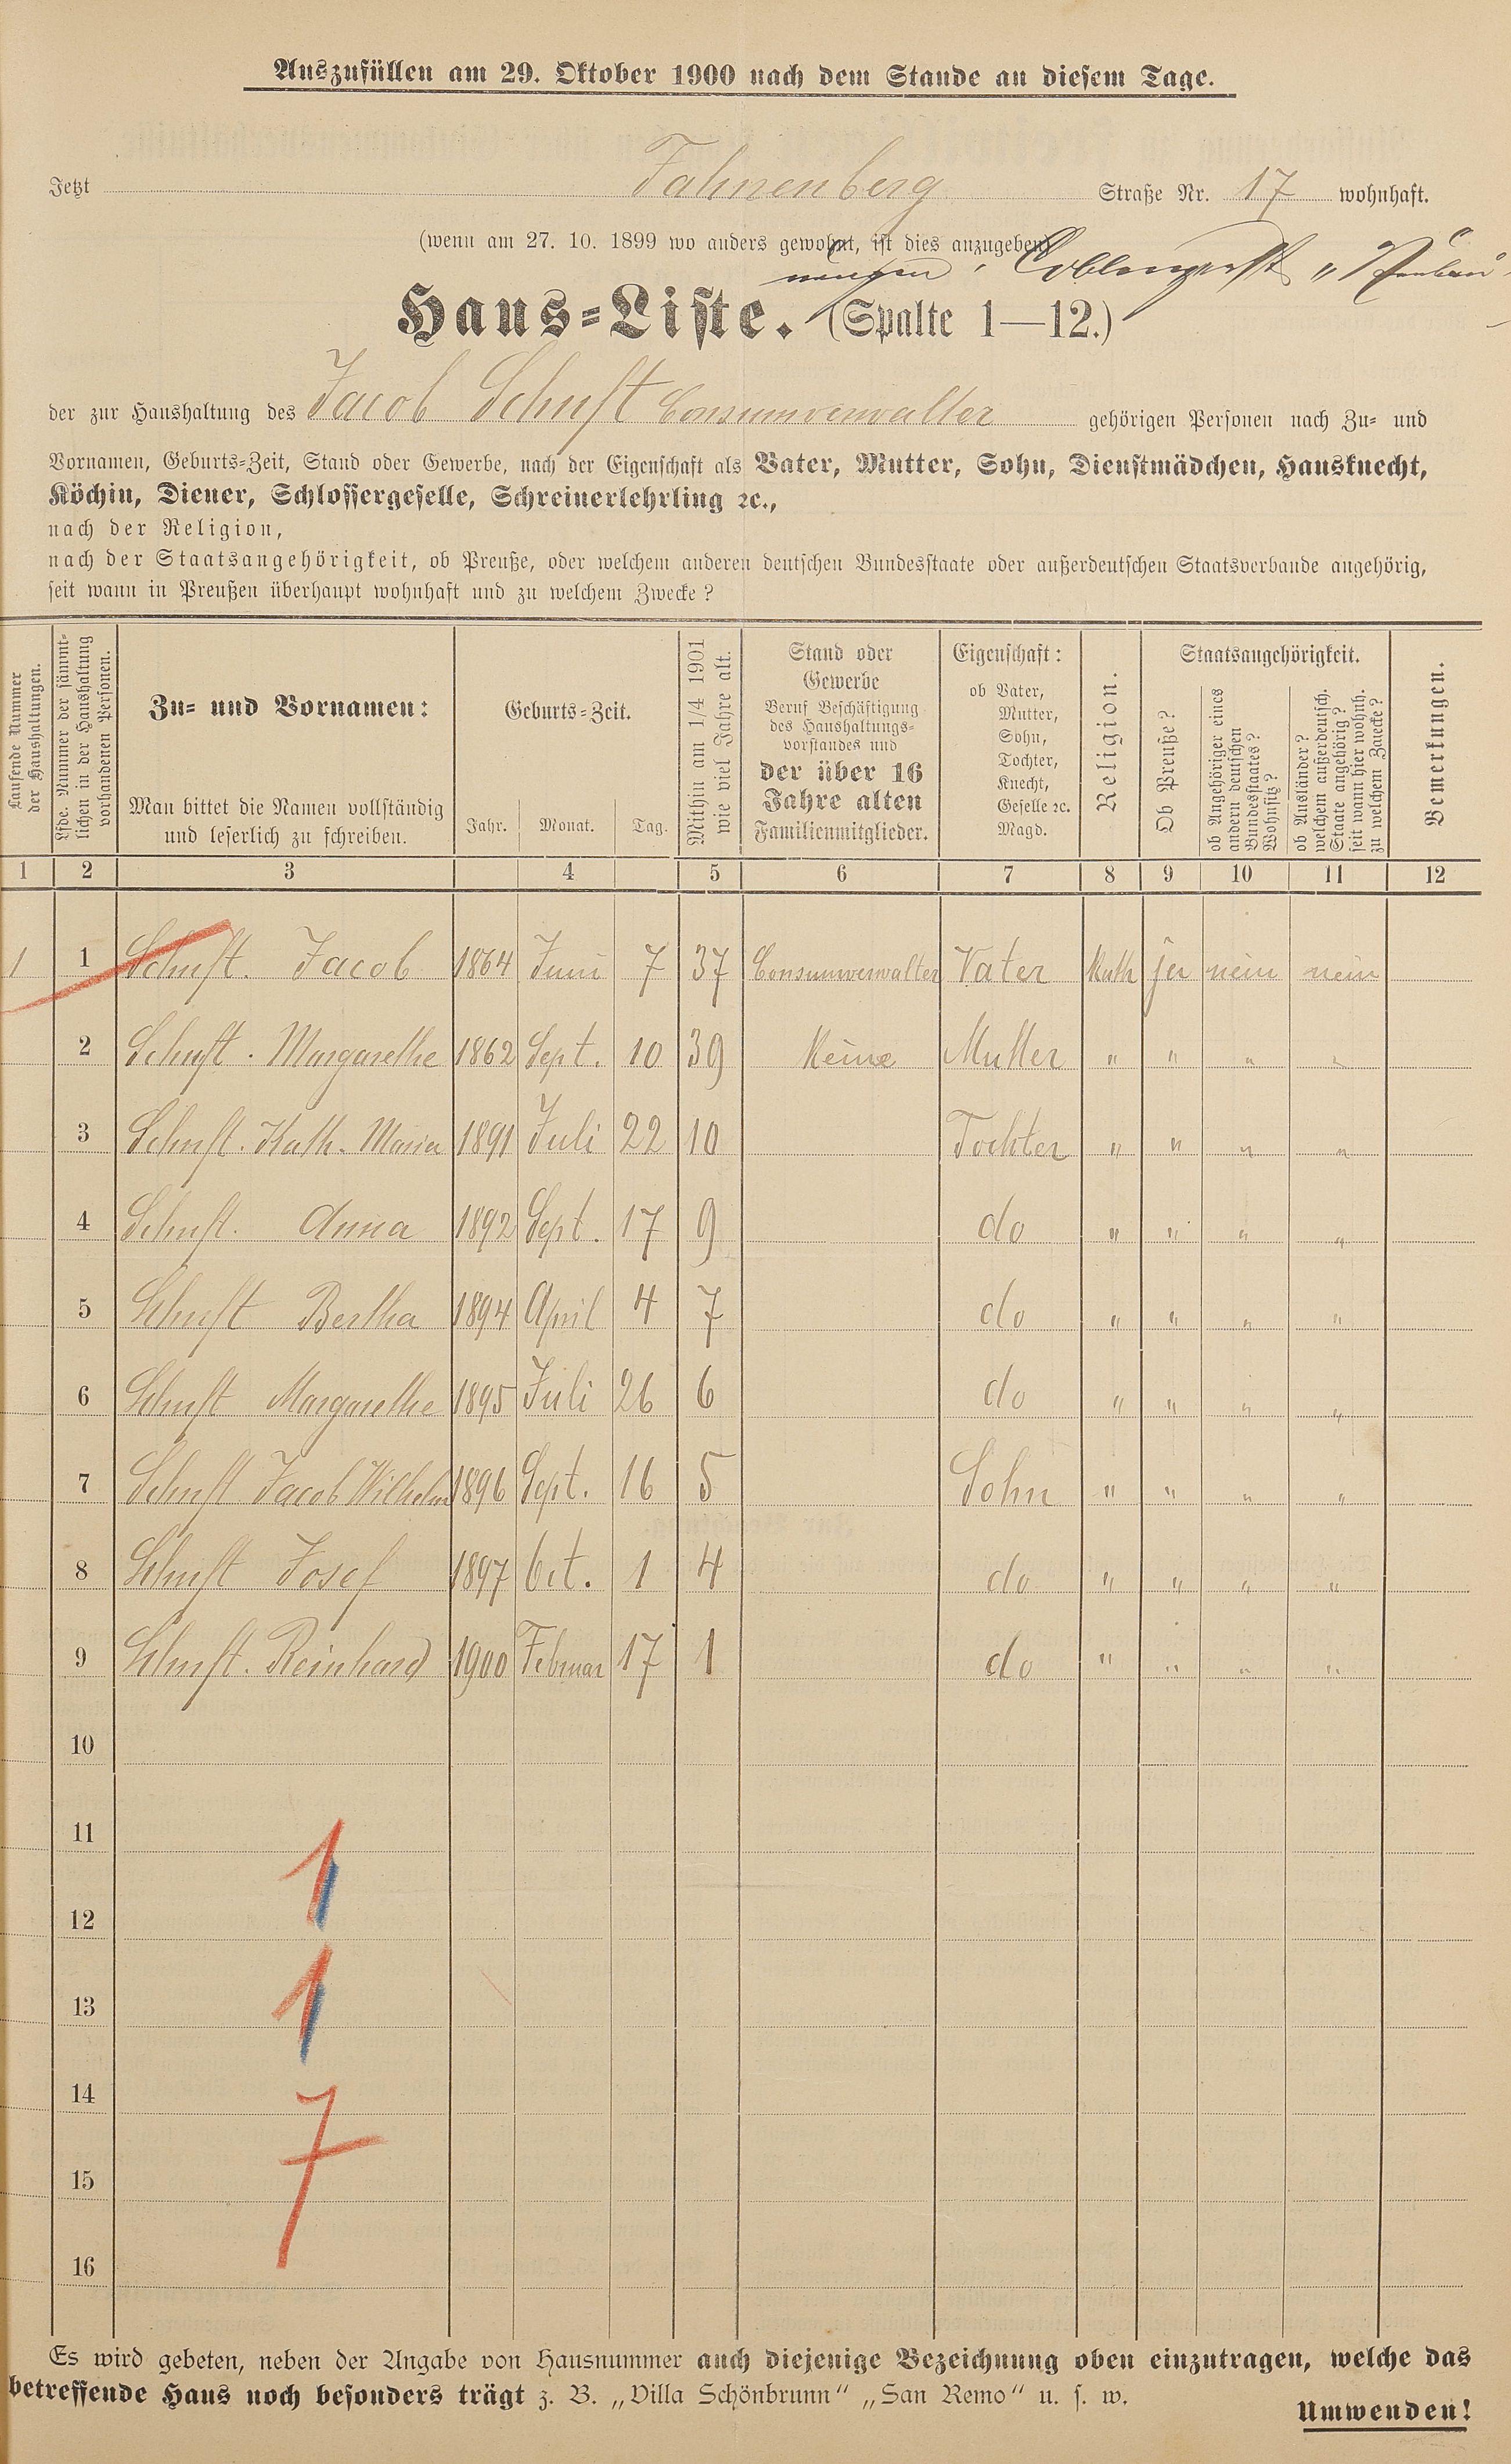 Auszufüllen am 29. Oktober 1900 nach dem Stande an diesem Tage.
Jetzt Fahnenberg Straße Nr. 17 wohnhaft.
(wenn am 27. 10. 1899 wo anders gewohnt, ist dies anzugeben)
Coblenzerstr
Haus-Liste. (Spalte 1—12.)
der zur Haushaltung des Jacob Schuft Consumverwalter gehörigen Personen nach Zu- und
Vornamen, Geburts-Zeit, Stand oder Gewerbe, nach der Eigenschaft als Vater, Mutter, Sohn, Dienstmädchen, Hausknecht,
Köchin, Diener, Schlossergeselle, Schreinerlehrling ꝛc.,
nach der Religion,
nach der Staatsangehörigkeit, ob Preuße, oder welchem anderen deutschen Bundesstaate oder außerdeutschen Staatsverbande angehörig,
seit wann in Preußen überhaupt wohnhaft und zu welchem Zwecke?
Laufende Nummer
der Haushaltungen.
Lfde. Nummer der sämmt-
lichen in der Haushaltung
vorhandenen Personen.
Zu- und Vornamen:
Man bittet die Namen vollständig
und leserlich zu schreiben.
Geburts-Zeit.
Jahr. Monat. Tag.
Mithin am 1/4 1901
wie viel Jahre alt.
Stand oder
Gewerbe
Beruf Beschäftigung
des Haushaltungs-
vorstandes und
der über 16
Jahre alten
Familienmitglieder.
Eigenschaft:
ob Vater,
Mutter,
Sohn,
Tochter,
Knecht,
Geselle ꝛc.
Magd.
Religion.
Staatsangehörigkeit.
Ob Preuße?
ob Angehöriger eines
andern deutschen
Bundesstaates?
Wohnsitz?
ob Ausländer?
welchem außerdeutsch.
Staate angehörig?
seit wann hier wohnh.
zu welchem Zwecke?
Bemerkungen.
1 2 3 4 5 6 7 8 9 10 11 12
1 1 Schuft. Jacob 1864 Juni 7 37 Consumverwalter Vater Kath ja nein nein
2 Schuft. Margarethe 1862 Sept. 10 39 Keine Mutter " " " "
3 Schuft. Kath. Maria 1891 Juli 22 10 Tochter " " " "
4 Schuft. Anna 1892 Sept. 17 9 do " " " "
5 Schuft Bertha 1894 April 4 7 do " " " "
6 Schuft Margarethe 1895 Juli 26 6 do " " " "
7 Schuft Jacob Wilhelm 1896 Sept. 16 5 Sohn " " " "
8 Schuft Josef 1897 Oct. 1 4 do " " " "
9 Schuft. Reinhard 1900 Februar 17 1 do " " " "
10
11
1
12
13
1
14
7
15
16
Es wird gebeten, neben der Angabe von Hausnummer auch diejenige Bezeichnung oben einzutragen, welche das
betreffende Haus noch besonders trägt z. B. „Villa Schönbrunn“ „San Remo“ u. s. w.
Umwenden!